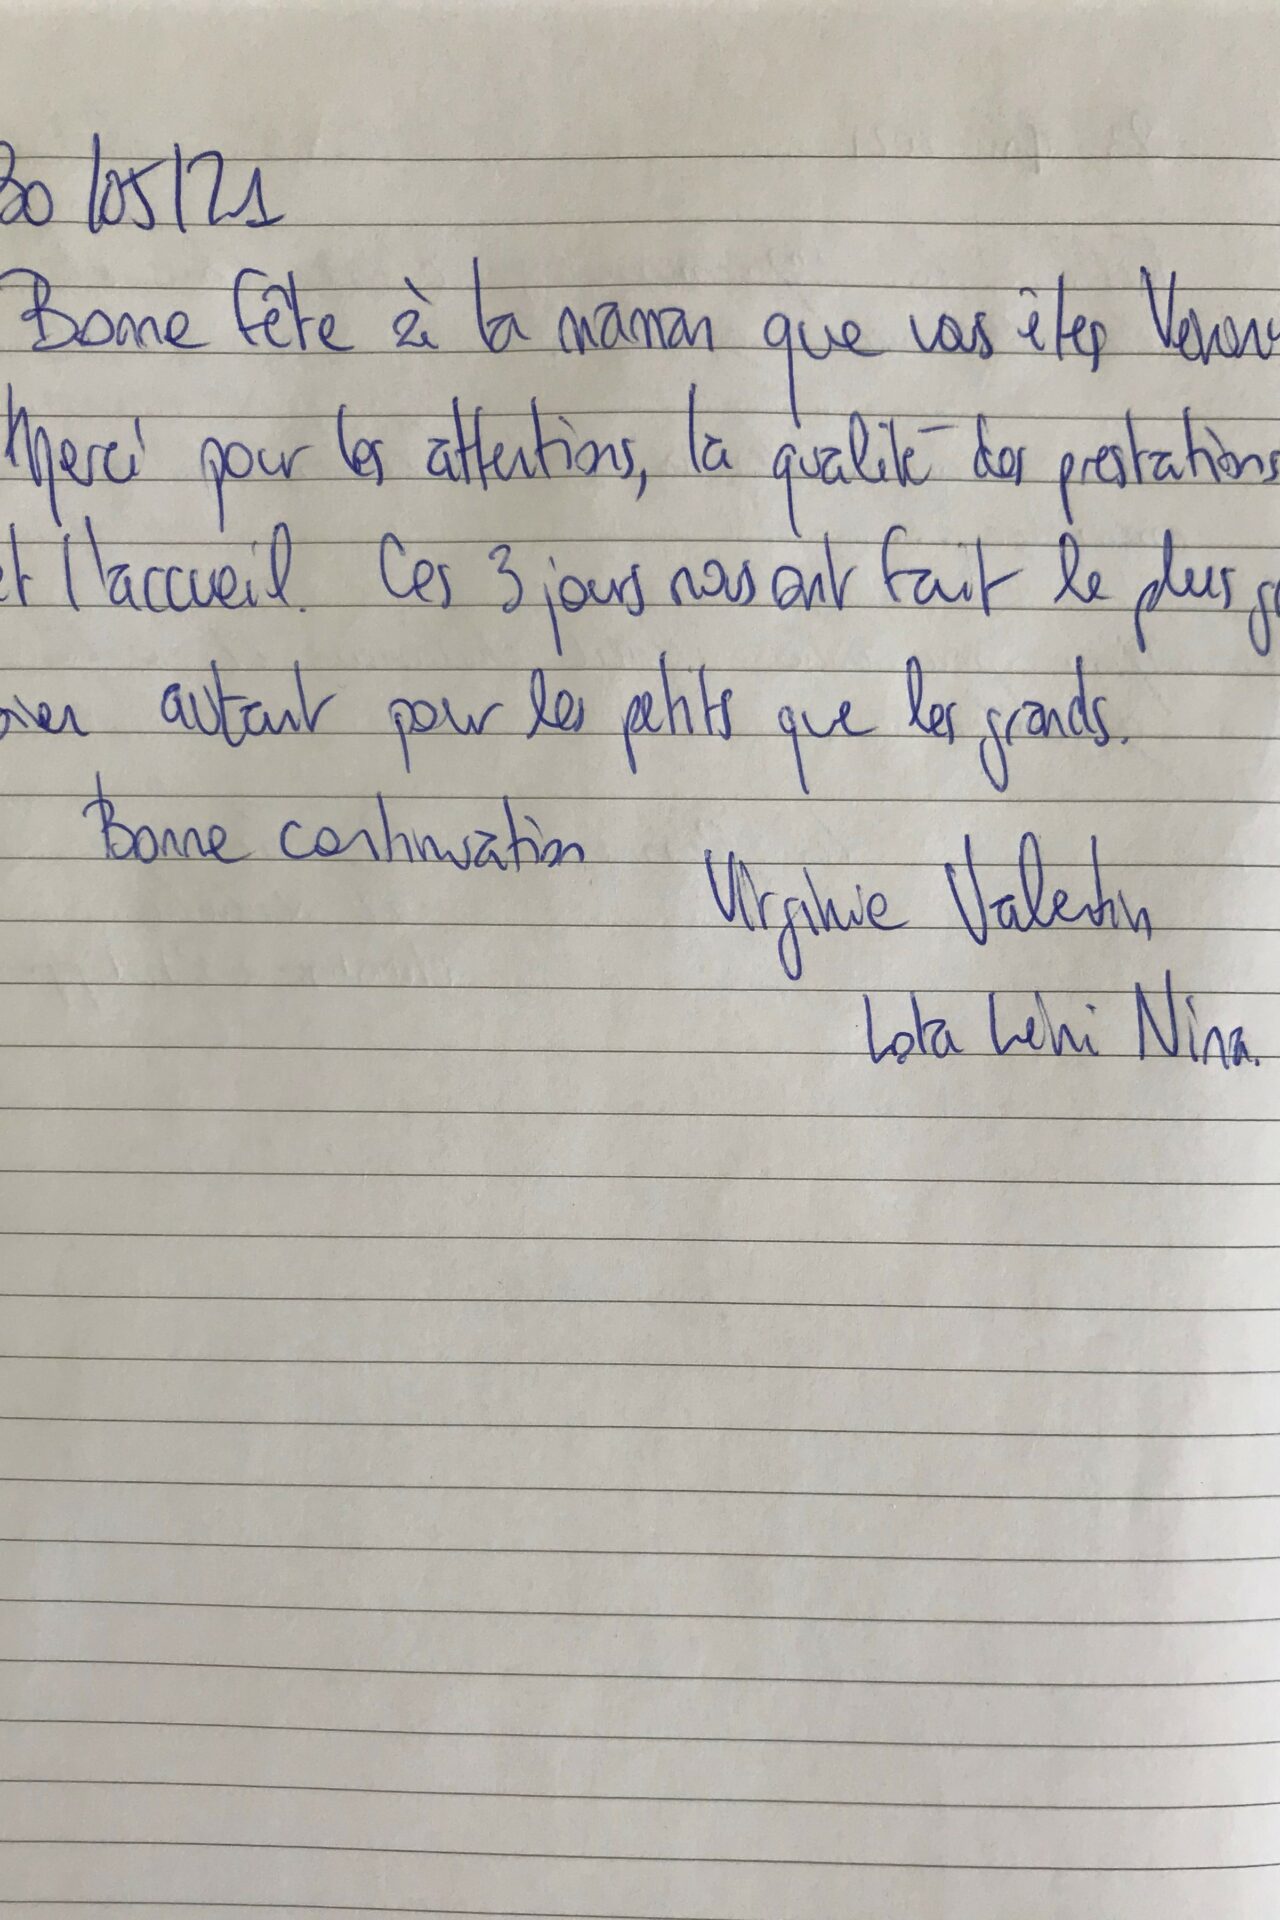 30/05/21
Bonne fête à la maman que vous êtes
Merci pour les attentions, la qualité des prestations
et l'accueil. Ces 3 jours nous ont fait le plus
autant pour les petits que les grands.
Bonne continuation
Virginie Valentin
Lola Léni Nina.